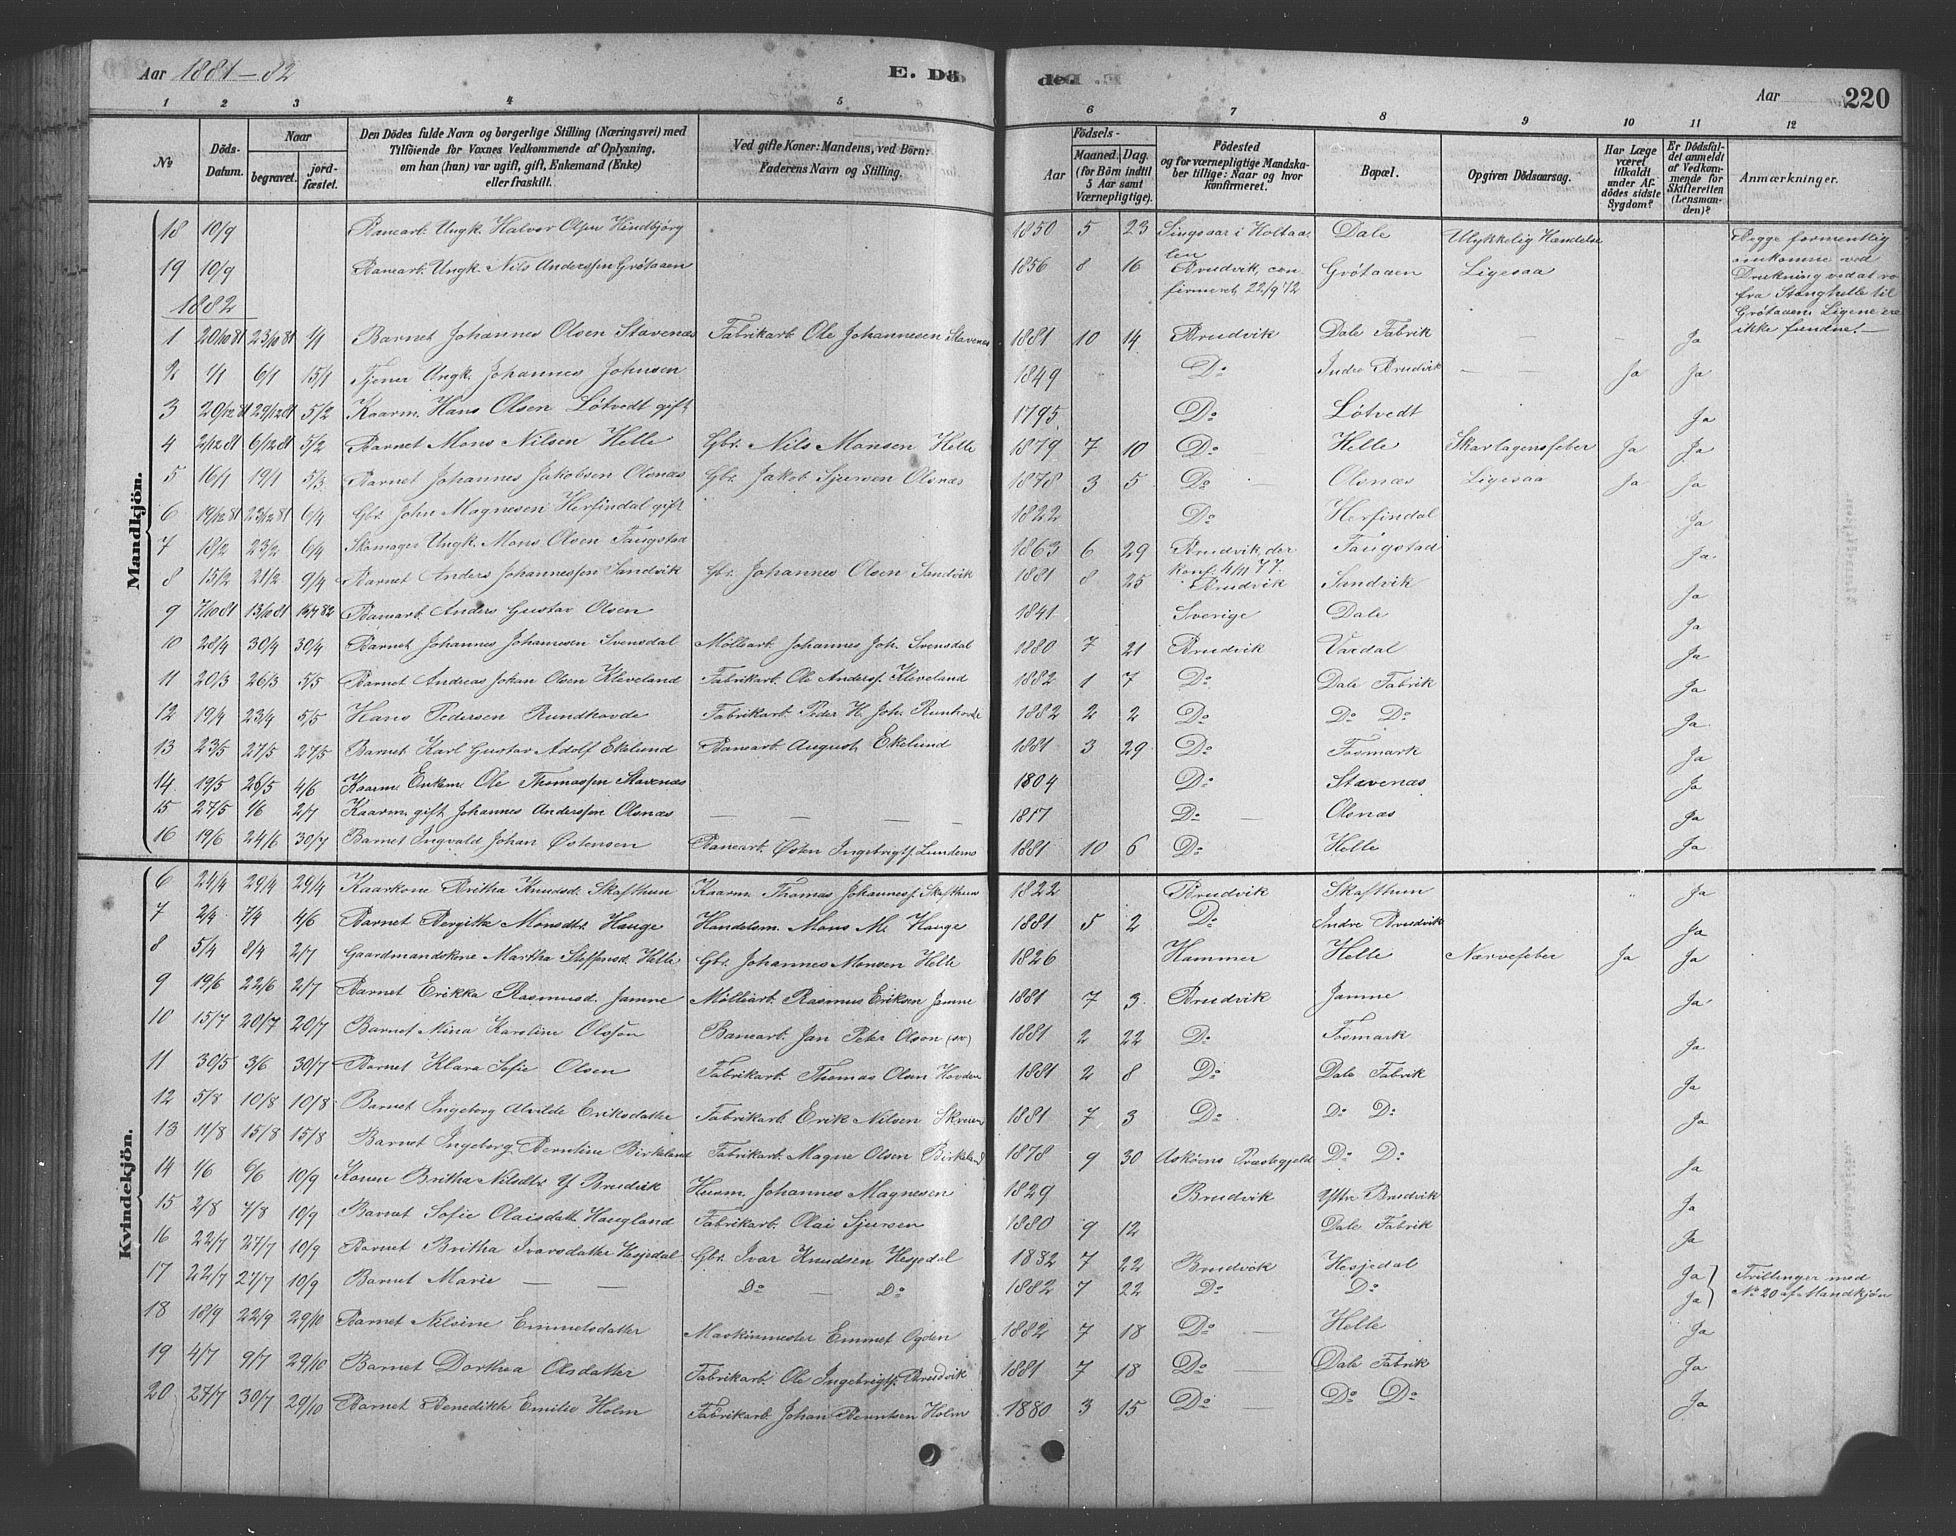 Aar 1881-82 E. Döde. Aar 220
1 2 3 4 5 6 7 8 9 10 11 12
No
Döds-Datum.
Naar begravet. jordfæstet.
Den Dödes fulde Navn og borgerlige Stilling (Næringsvei) med Tilföiende for Voxnes Vedkommende af Oplysning, om han (hun) var ugift, gift, Enkemand (Enke) eller fraskilt.
Ved gifte Koner: Mandens, ved Börn: Faderens Navn og Stilling.
Födsels-
Aar Maaned. Dag. (for Börn indtil 5 Aar samt Værnepligtige).
Födested og for værnepligtige Mandskaber tillige: Naar og hvor konfirmeret.
Bopæl.
Opgiven Dödsaarsag.
Har Læge været tilkaldt under Afdödes sidste Sygdom?
Er Dödsfaldet anmeldt af Vedkommende for Skifteretten (Lensmanden)?
Anmærkninger.
Mandkjön.
18 10/9 Banearb. Ungk. Halvor Olsen Hindbjörg 1850 5 23 Singsaas i Holtaalen Dale Ulykkelig Hændelse
19 10/9 Banearb. Ungk. Nils Anderssen Grötaaen 1856 8 16 Brudvik, confirmeret 22/9 72 Grötaaen Ligesaa
Begge formentlig omkomne ved Drukning ved at ro fra Stanghelle til Grötaaen. Ligene ere ikke fundne.
1882
1 20/10 81 23/10 81 1/1 Barnet Johannes Olsen Stavenæs Fabrikarb. Ole Johannesen Stavenæs 1881 10 14 Brudvik Dale Fabrik — — Ja
2 1/1 6/1 15/1 Tjener Ungk. Johannes Johnsen 1849 Do Indre Brudvik — — Ja Ja
3 20/12 81 29/12 81 5/2 Kaarm. Hans Olsen Lötvedt gift 1795 Do Lötvedt Ja
4 2/12 81 6/12 81 5/2 Barnet Mons Nilsen Helle Gbr. Nils Monsen Helle 1879 7 10 Do Helle Skarlagensfeber Ja Ja
5 16/1 19/1 5/3 Barnet Johannes Jakobsen Olsnæs Gbr. Jakob Sjursen Olsnæs 1878 3 5 Do Olsnæs Ligesaa Ja Ja
6 19/12 81 23/12 81 6/4 Gbr. John Magnesen Herfindal gift 1822 Do Herfindal Ja
7 18/2 23/2 6/4 Skomager Ungk. Mons Olsen Faugstad 1863 6 29 Brudvik, der konf. 4/11 77. Faugstad Ja
8 15/2 21/2 9/4 Barnet Anders Johannessen Sandvik Gbr. Johannes Olsen Sandvik 1881 8 25 Brudvik Sandvik Ja
9 7/10 81 13/10 81 82 Banearb. Anders Gustav Olsen 1841 Sverige Dale Ja
10 28/4 30/4 30/4 Barnet Johannes Johannesen Svensdal Möllearb. Johannes Joh. Svensdal 1880 7 21 Brudvik Vaxdal Ja
11 20/3 26/3 5/5 Barnet Andreas Johan Olsen Kleveland Fabrikarb. Ole Anderss. Kleveland 1882 1 7 Do Dale Fabrik Ja
12 19/4 23/4 5/5 Hans Pedersen Rundhovde Fabrikarb. Peder H. Joh. Runhovde 1882 2 2 Do Do Do Ja
13 23/5 27/5 27/5 Barnet Karl Gustav Adolf Ekelund Banearb. August Ekelund 1881 3 29 Do Fosmark Ja
14 19/5 26/5 4/6 Kaarm. Enkem. Ole Thomassen Stavenæs 1804 Do Stavenæs Ja
15 27/5 1/6 2/7 Kaarm. gift Johannes Anderssen Olsnæs — — — 1817 Do Olsnæs Ja
16 19/6 24/6 30/7 Barnet Ingvald Johan Östensen Banearb. Östen Ingebrigts. Lundemo 1881 10 6 Do Helle Ja
Kvindekjön.
6 24/4 29/4 29/4 Kaarkone Britha Knudsd. Skafthun Kaarm. Thomas Johanness. Skafthun 1822 Brudvik Skafthun Ja
7 2/4 7/4 4/6 Barnet Bergitha Monsdtr. Hauge Handelsm. Mons M. Hauge 1881 5 2 Do Indre Brudvik Ja
8 5/4 8/4 2/7 Gaardmandskone Martha Steffensd. Helle Gbr. Johannes Monsen Helle 1826 Hammer Helle Nervefeber Ja Ja
9 19/6 22/6 2/7 Barnet Erikka Rasmusd. Jamne Möllearb. Rasmus Eriksen Jamne 1881 7 3 Brudvik Jamne Ja
10 15/7 20/7 20/7 Barnet Nina Karoline Olsson Banearb. Jan Peter Olson (sv) 1881 2 22 Do Fosmark Ja
11 30/5 3/6 30/7 Barnet Klara Sofie Olsen Fabrikarb. Thomas Olsen Hovden 1881 2 8 Do Dale Fabrik Ja
12 5/8 10/8 10/8 Barnet Ingeborg Alvilde Eriksdatter Fabrikarb. Erik Nilsen Skreien 1881 7 3 Do Do Do Ja
13 11/8 15/8 15/8 Barnet Ingeborg Berntine Birkeland Fabrikarb. Magne Olsen Birkeland 1878 9 30 Asköens Præstegjeld Do Do Ja
14 1/6 6/6 10/9 Konen Britha Nilsdtr. Y. Brudvik Husm. Johannes Magnesen 1829 Brudvik Ytre Brudvik Ja
15 2/8 7/8 10/9 Barnet Sofie Olaisdatter Haugland Fabrikarb. Olai Sjursen 1880 9 12 Dale Fabrik Ja
16 22/7 27/7 10/9 Barnet Britha Ivarsdatter Hesjedal Gbr. Ivar Knudsen Hesjedal 1882 7 22 Brudvik Hesjedal Ja
17 22/7 27/7 10/9 Barnet Marie — — Do — Do 1882 7 22 Do Do Ja
Trillinger med No 20 af Mandkjön
18 18/9 22/9 29/10 Barnet Nilsine Emmetsdatter Maskinmester Emmet Ogden 1882 7 18 Do Helle Ja
19 4/7 9/7 29/10 Barnet Dorthea Olsdatter Fabrikarb. Ole Ingebrigts. Brudvik 1881 7 18 Do Dale Fabrik Ja
20 27/7 30/7 29/10 Barnet Benedikte Emilie Holm Fabrikarb. Johan Berntsen Holm 1880 3 15 Do Do Do Ja